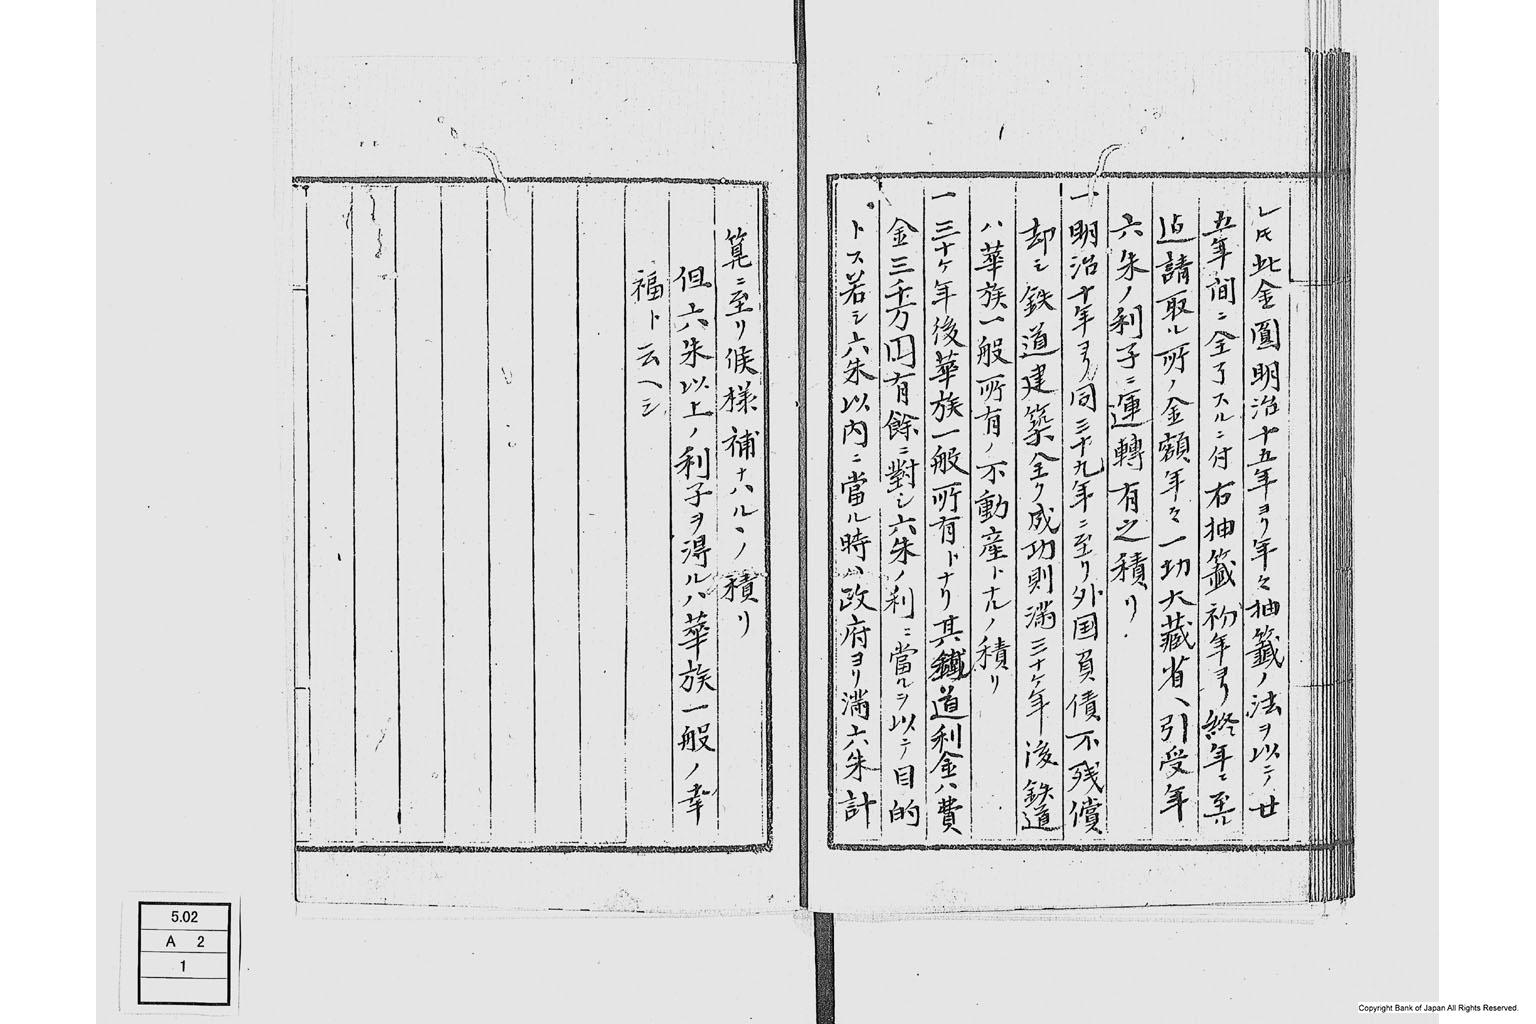 レ𪜈此金圓明治十五年ヨリ年々抽籤ノ法ヲ以テ廿
五年間ニ全了スルニ付右抽籤初年ヨリ終年ニ至ル
迠請取ル所ノ金額年々一切大藏省ヘ引受年
六朱ノ利子ニ運轉有之積リ
一明治十年ヨリ同三十九年ニ至リ外国負債不残償
却シ鉄道建築全ク成功則滿三十ケ年後鉄道
ハ華族一般所有ノ不動産トナルノ積リ
一三十ケ年後華族一般所有トナリ其鐵道利金ハ費
金三千万円有餘ニ對シ六朱ノ利ニ當ルヲ以テ目的
トス若シ六朱以内ニ當ル時ハ政府ヨリ滿六朱計
算ニ至リ候様補ナハルヽノ積リ
但六朱以上ノ利子ヲ得ルハ華族一般ノ幸
福ト云ヘシ
5.02
A 2
1
Copyright Bank of Japan All Rights Reserved.